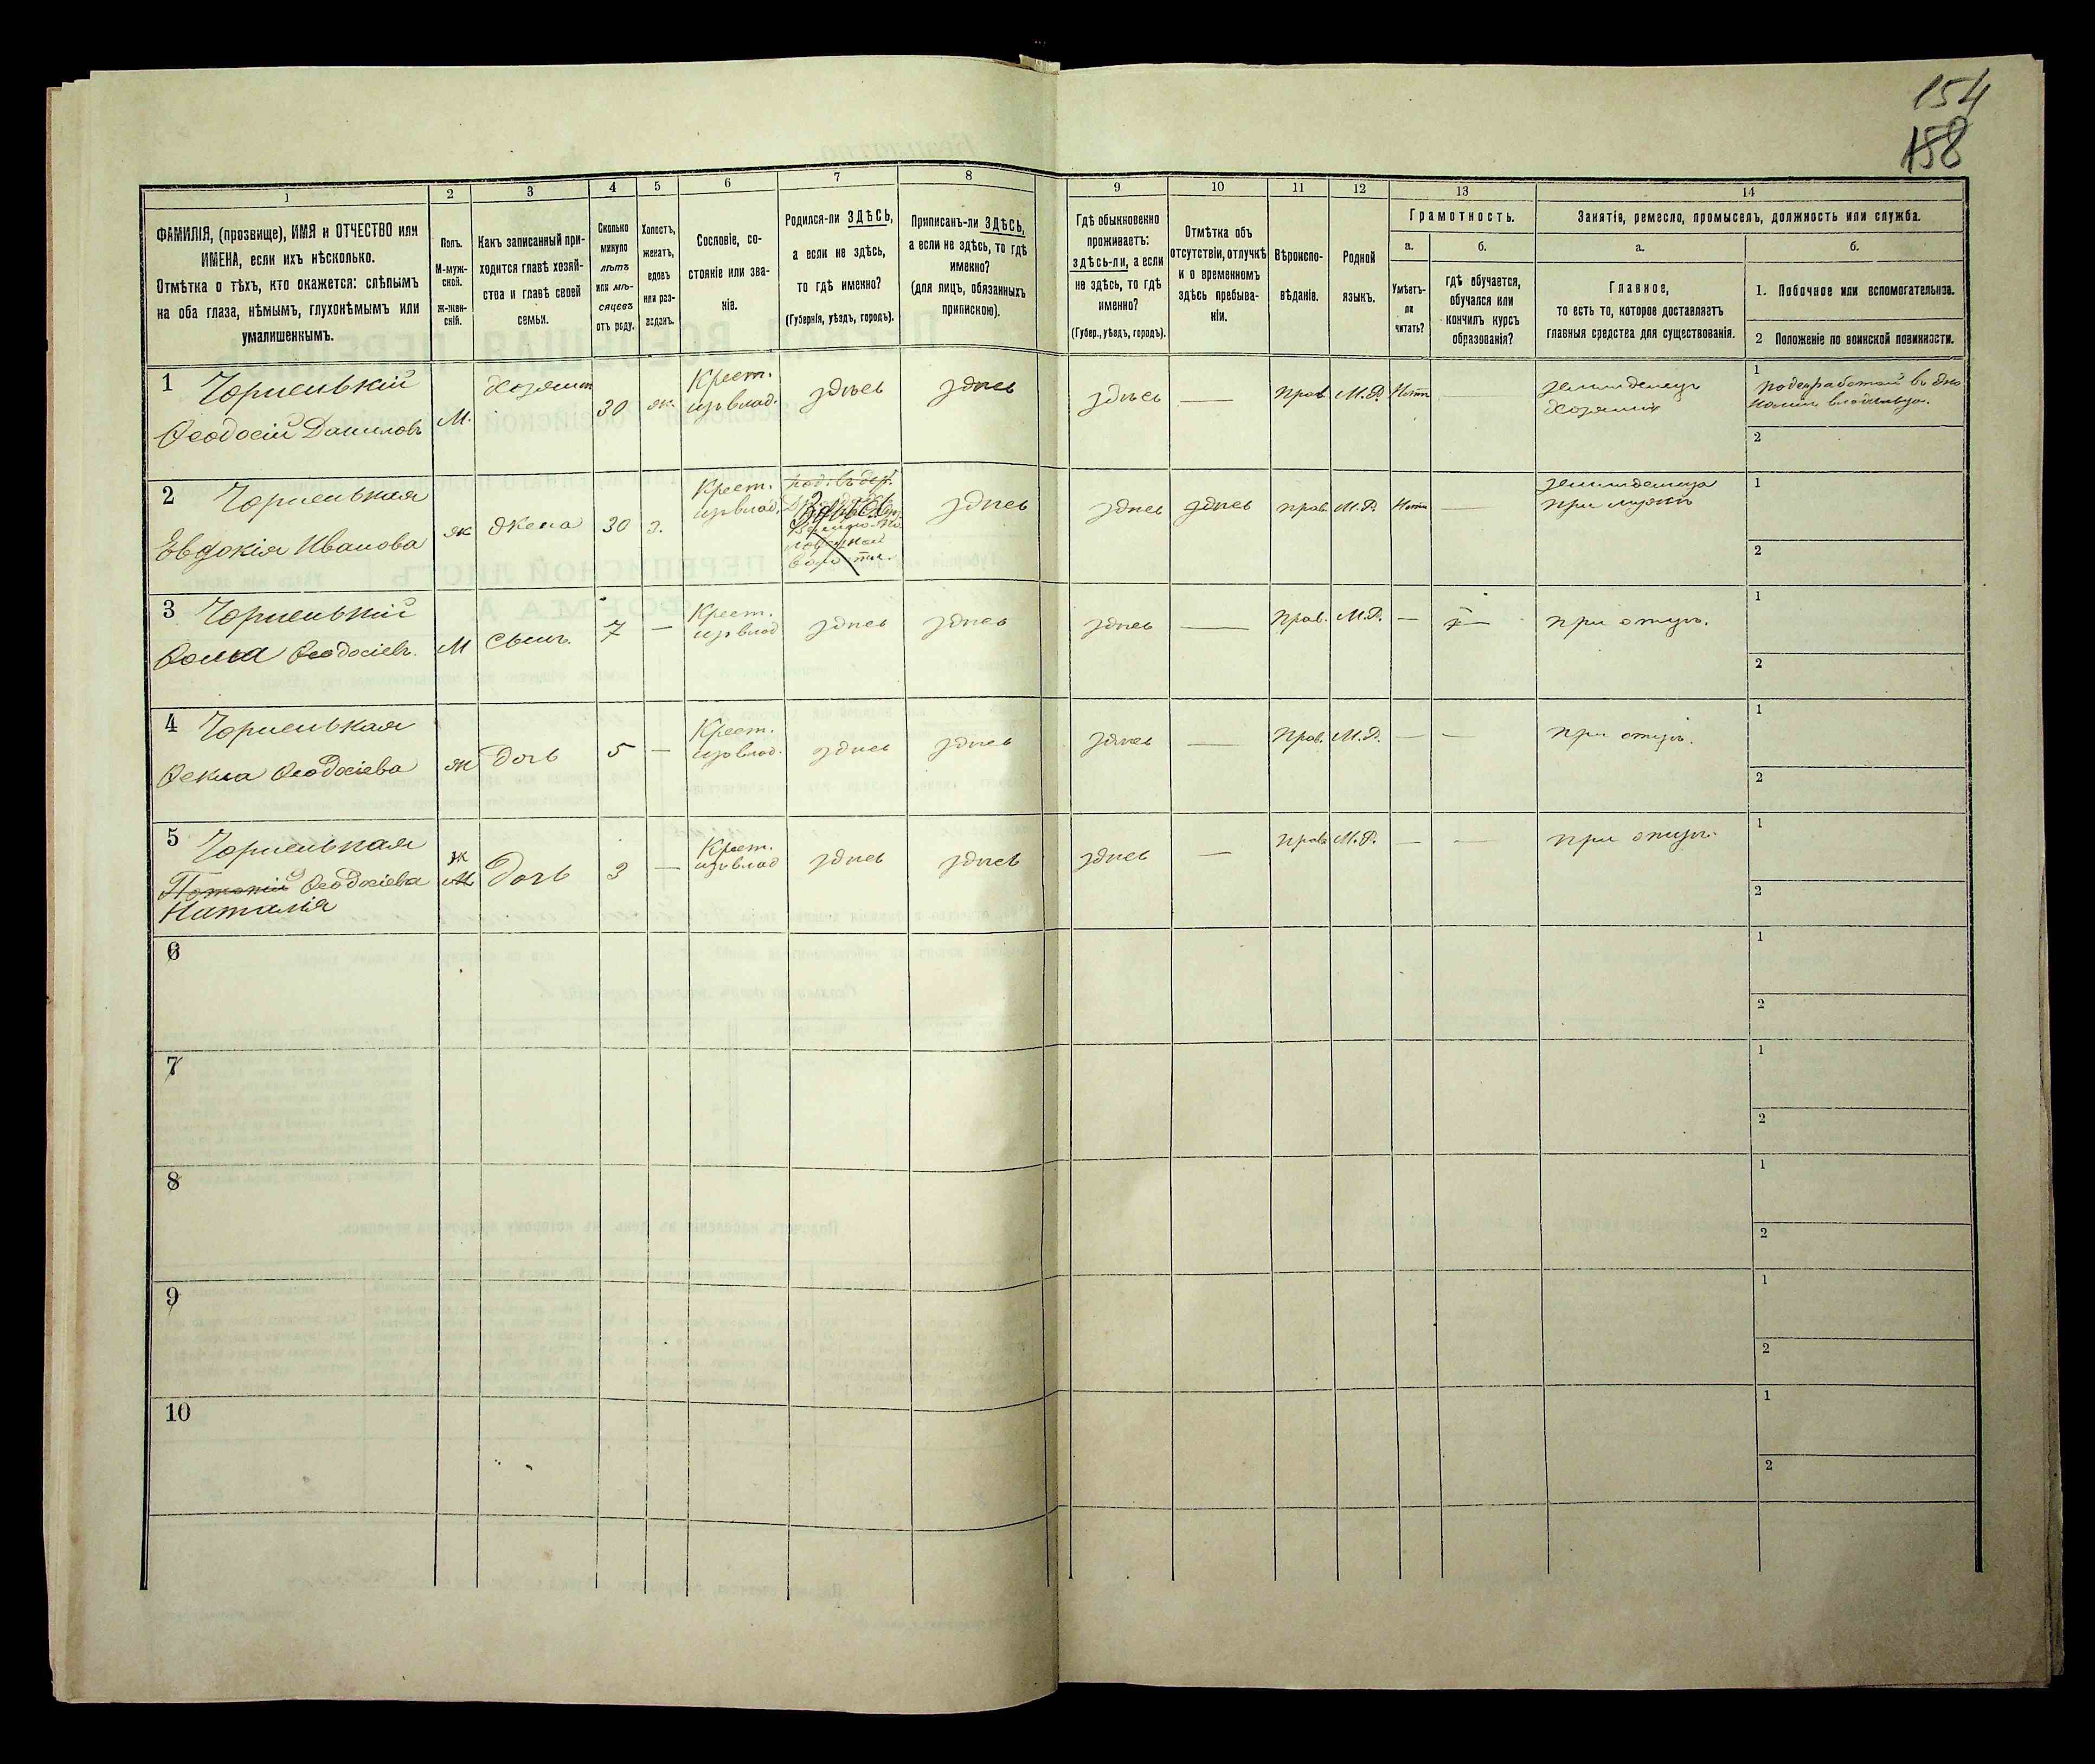 154
158
1
2
3
4
5
6
7
8
9
10
11
12
13
14
ФАМИЛІЯ, (прозвище), ИМЯ и ОТЧЕСТВО или
ИМЕНА, если ихъ нѣсколько.
Отмѣтка о тѣхъ, кто окажется: слѣпымъ
на оба глаза, нѣмымъ, глухонѣмымъ или
умалишеннымъ.
Полъ.
М-муж-
ской.
Ж-жен-
скій.
Какъ записанный при-
ходится главѣ хозяй-
ства и главѣ своей
семьи.
Сколько
минуло
лѣтъ
или мѣ-
сяцевъ
отъ роду.
Холостъ,
женатъ,
вдовъ
или раз-
веденъ.
Сословіе, со-
стояніе или зва-
ніе.
Родился-ли ЗДѢСЬ,
а если не здѣсь,
то гдѣ именно?
(Губернія, уѣздъ, городъ).
Приписанъ-ли ЗДѢСЬ,
а если не здѣсь, то гдѣ
именно?
(для лицъ, обязанныхъ
припискою).
Гдѣ обыкновенно
проживаетъ:
здѣсь-ли, а если
не здѣсь, то гдѣ
именно?
(Губер., уѣздъ, городъ).
Отмѣтка объ
отсутствіи, отлучкѣ
и о временномъ
здѣсь пребыва-
ніи.
Вѣроиспо-
вѣданіе.
Родной
языкъ.
Грамотность.
а.
Умѣетъ-
ли
читать?
б.
гдѣ обучается,
обучался или
кончилъ курсъ
образованія?
Занятіе, ремесло, промыселъ, должность или служба.
а.
Главное,
то есть то, которое доставляетъ
главныя средства для существованія.
б.
1. Побочное или вспомогательное.
2 Положеніе по воинской повинности.
1 Чорненькій
Ѳеодосій Даниловъ
М.
Хозяинъ
30
жн.
Крест.
изъ влад.
здѣсь
здѣсь
здѣсь
—
Прав.
М.Р.
Нѣтъ
—
земледелецъ
Хозяинъ
1
2
2 Чорненькая
Евдокія Иванова
ж
Жена
30
з.
Крест.
изъ влад.
род. въ дер.
здѣсь
здѣсь
здѣсь
прав.
М.Р.
Нѣтъ
—
земледелица
при мужѣ
1
2
3 Чорненькій
Ѳома Ѳеодосіевъ.
М
Сынъ.
7
—
Крест.
изъ влад
здѣсь
здѣсь
здѣсь
—
Прав.
М.Р.
—
—
при отцѣ.
1
2
4 Чорненькая
Ѳекла Ѳеодосіева
ж
Дочь
5
—
Крест.
изъ влад.
здѣсь
здѣсь
здѣсь
—
Прав.
М.Р.
—
—
при отцѣ.
1
2
5 Чорненькая
Ѳеодосіева
Наталія
ж
М
Дочь
3
—
Крест.
изъ влад
здѣсь
здѣсь
здѣсь
—
прав
М.Р.
—
—
при отцѣ.
1
2
6
1
2
7
1
2
8
1
2
9
1
2
10
1
2